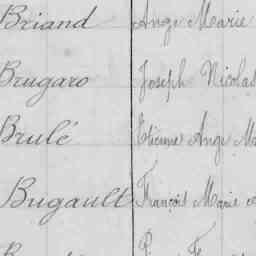 Briand Ange Marie
Brugaro Joseph Nicolas
Brulé Etienne Ange
Bugault François Marie